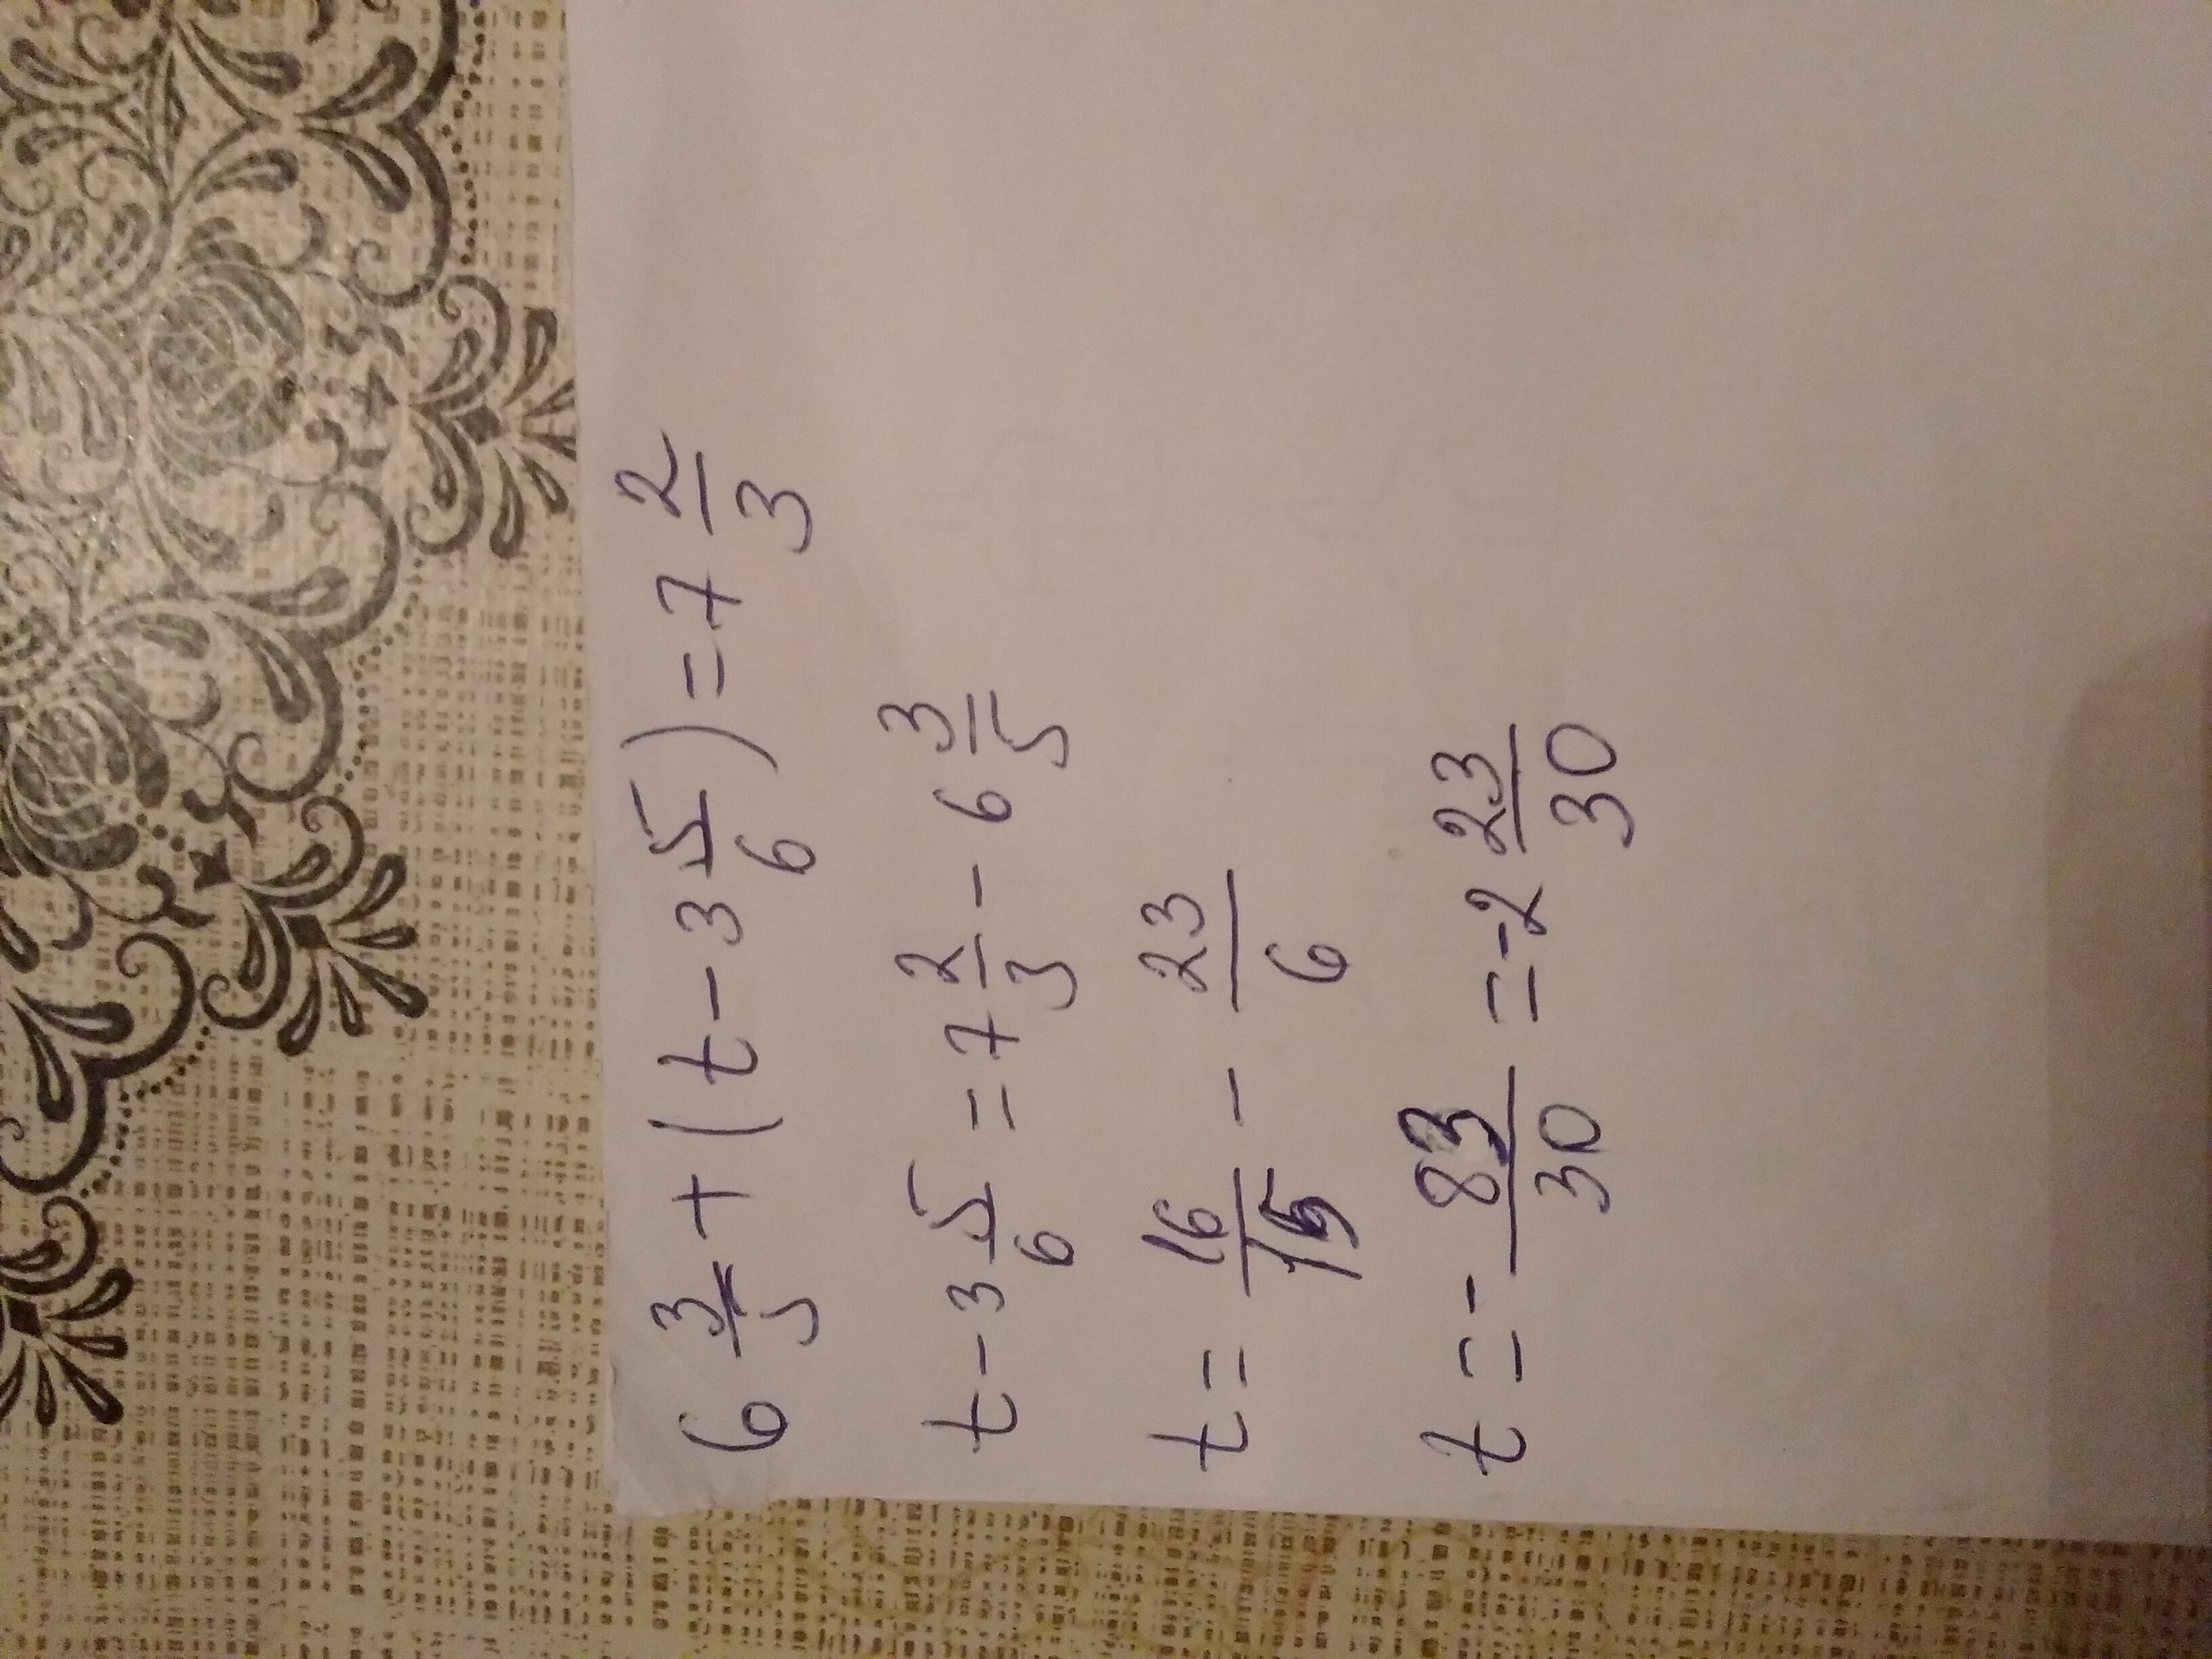 6 3/5 + (t - 3 5/6) = 7 2/3
t - 3 5/6 = 7 2/3 - 6 3/5
t = 16/15 - 23/6
t = - 83/30 = -2 23/30